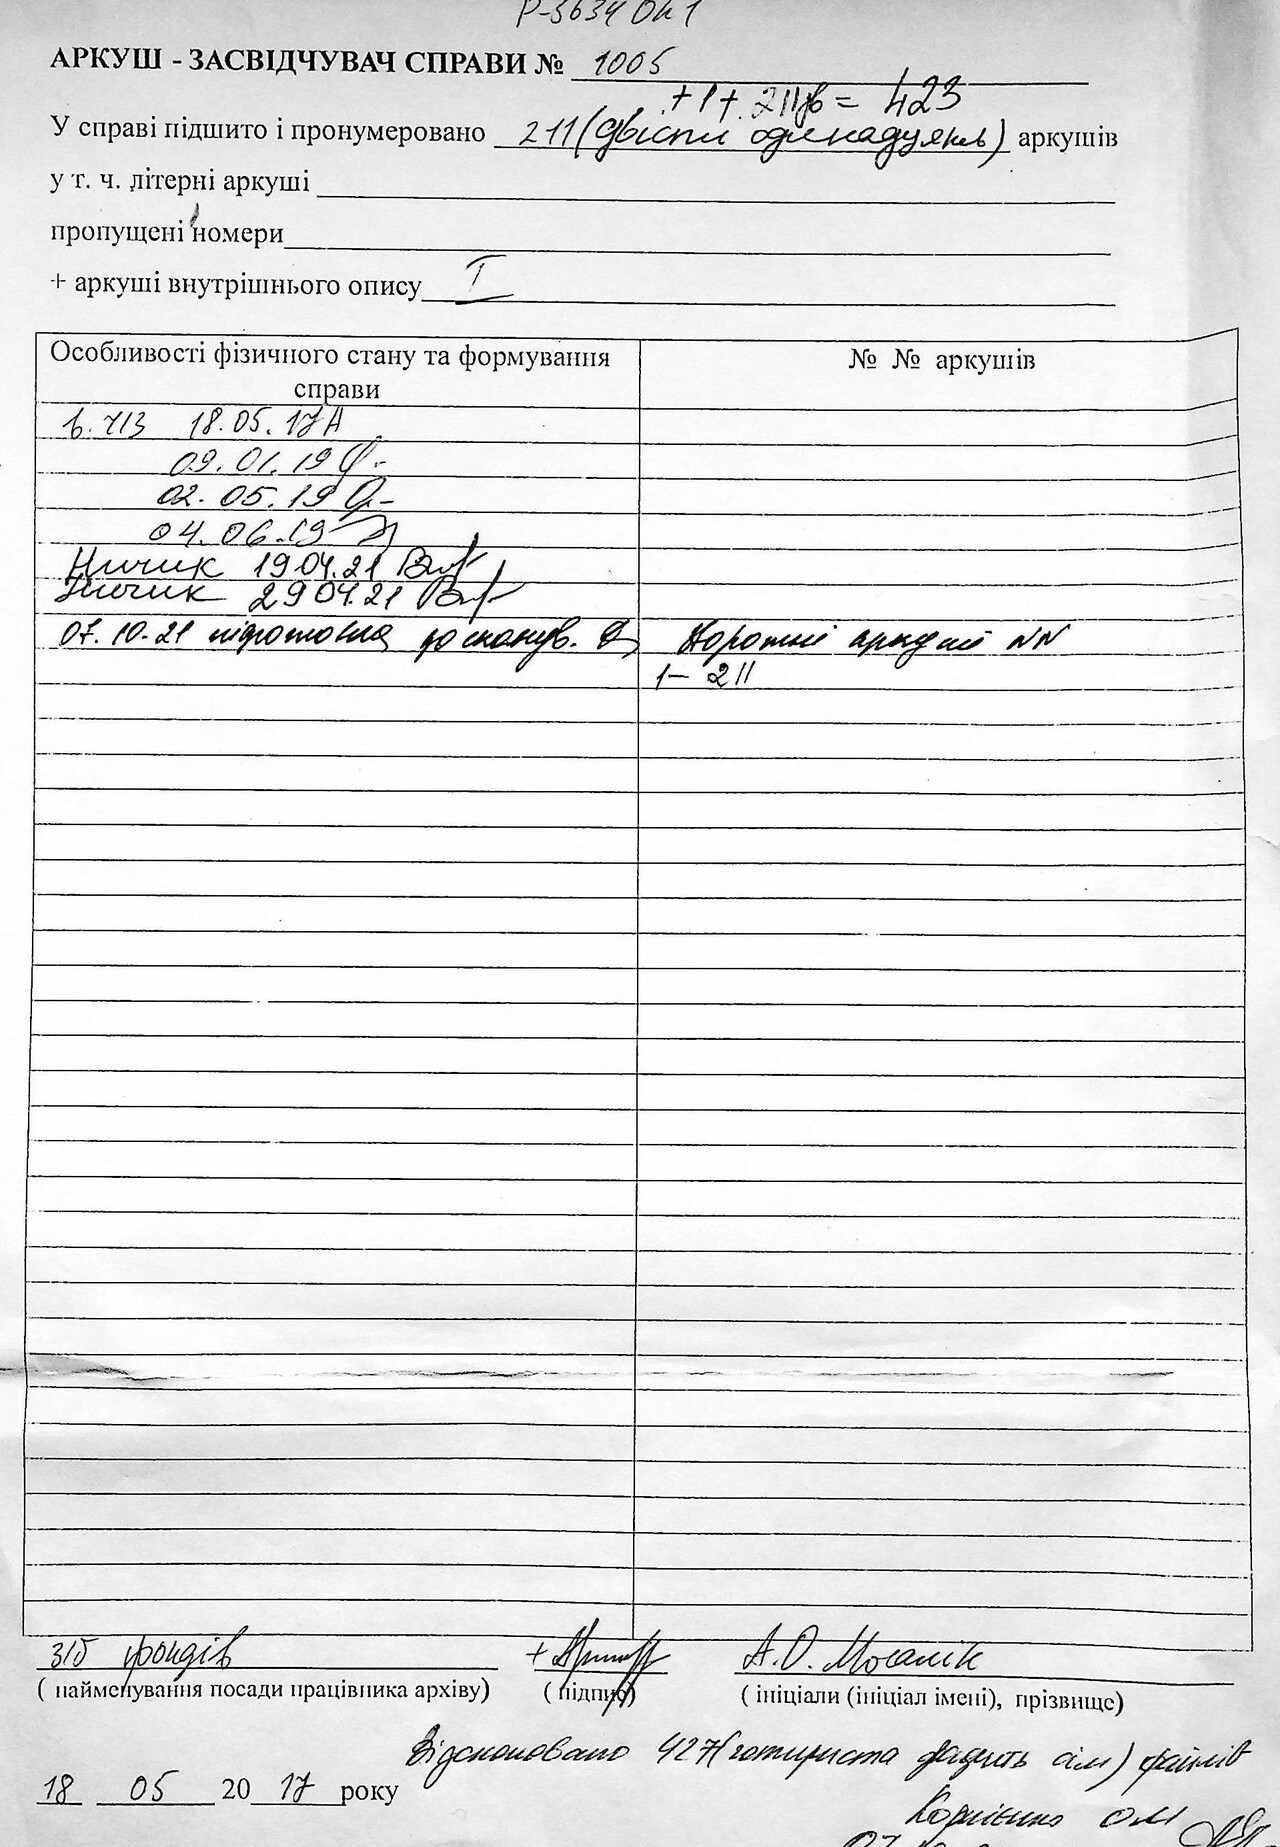 Р-5634 Оп 1
АРКУШ - ЗАСВІДЧУВАЧ СПРАВИ № 1005
+ 1 + 211зв = 423
У справі підшито і пронумеровано 211 (двісті одинадцять) аркушів
у т. ч. літерні аркуші
пропущені номери
+ аркуші внутрішнього опису I
Особливості фізичного стану та формування справи
№ № аркушів
18.05.17
09.01.19
02.05.19
04.06.19
19 04.21
29 04.21
07.10.21 підготовка до сканув. Чорот
аркуші NN
1 – 211
фондів
А.О. Мосалік
( найменування посади працівника архіву) ( підпис) ( ініціали (ініціал імені), прізвище)
Відскановано 427 (чотириста двадцять сім) файлів
18 05 20 17 року
Корнієнко О.М